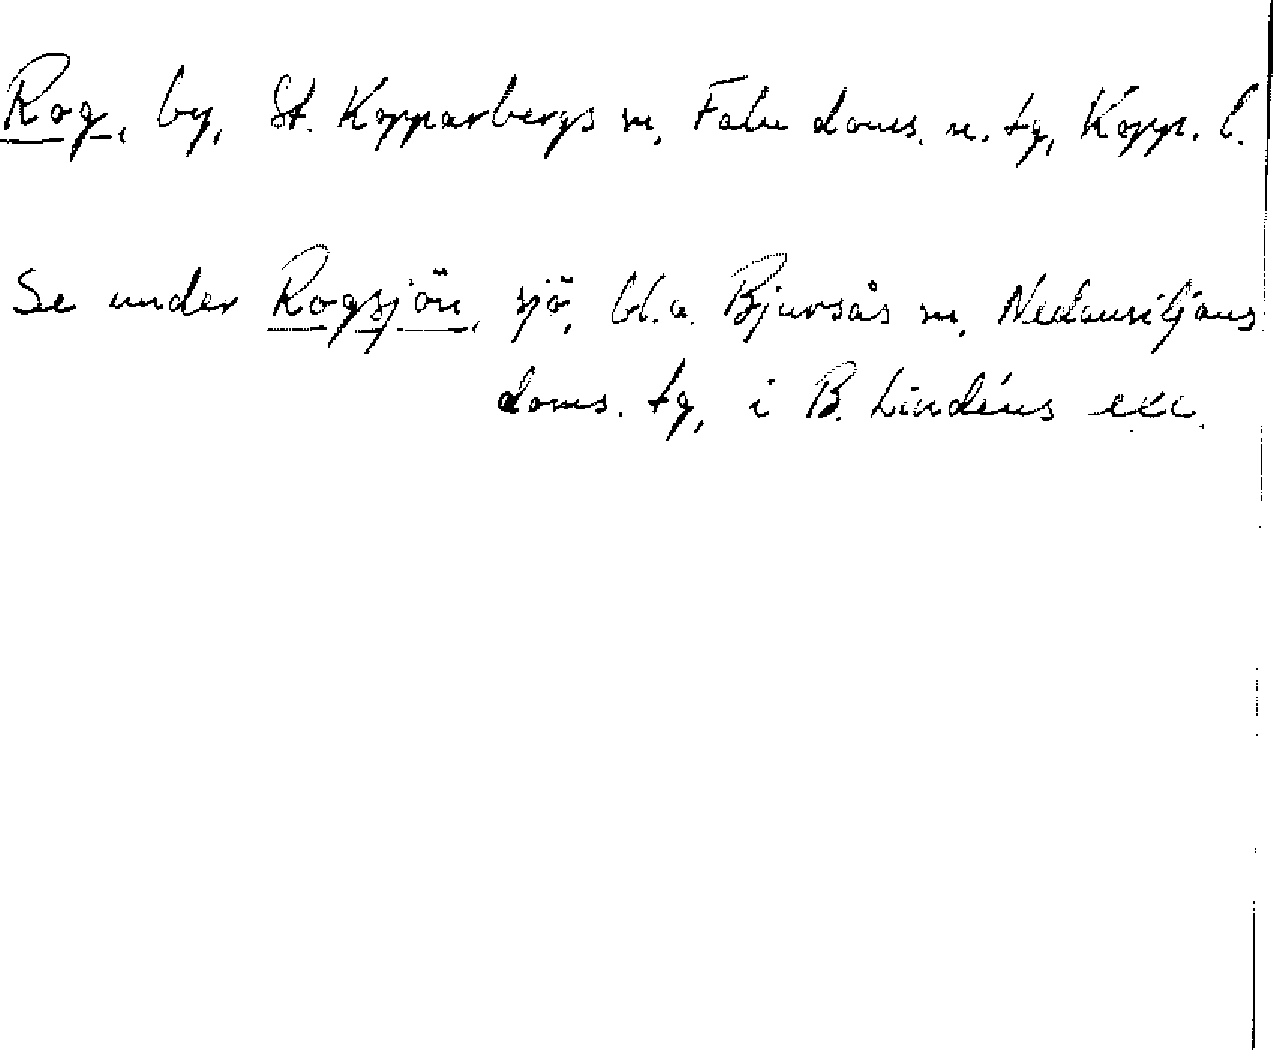 Rog, by, St. Kopparbergs sn, Falu doms. n. tg, Kopp. l.
Se under Rogsjön, sjö, bl.a. Bjursås sn, Nedansiljans
doms. tg, i B. Lindéns exc.